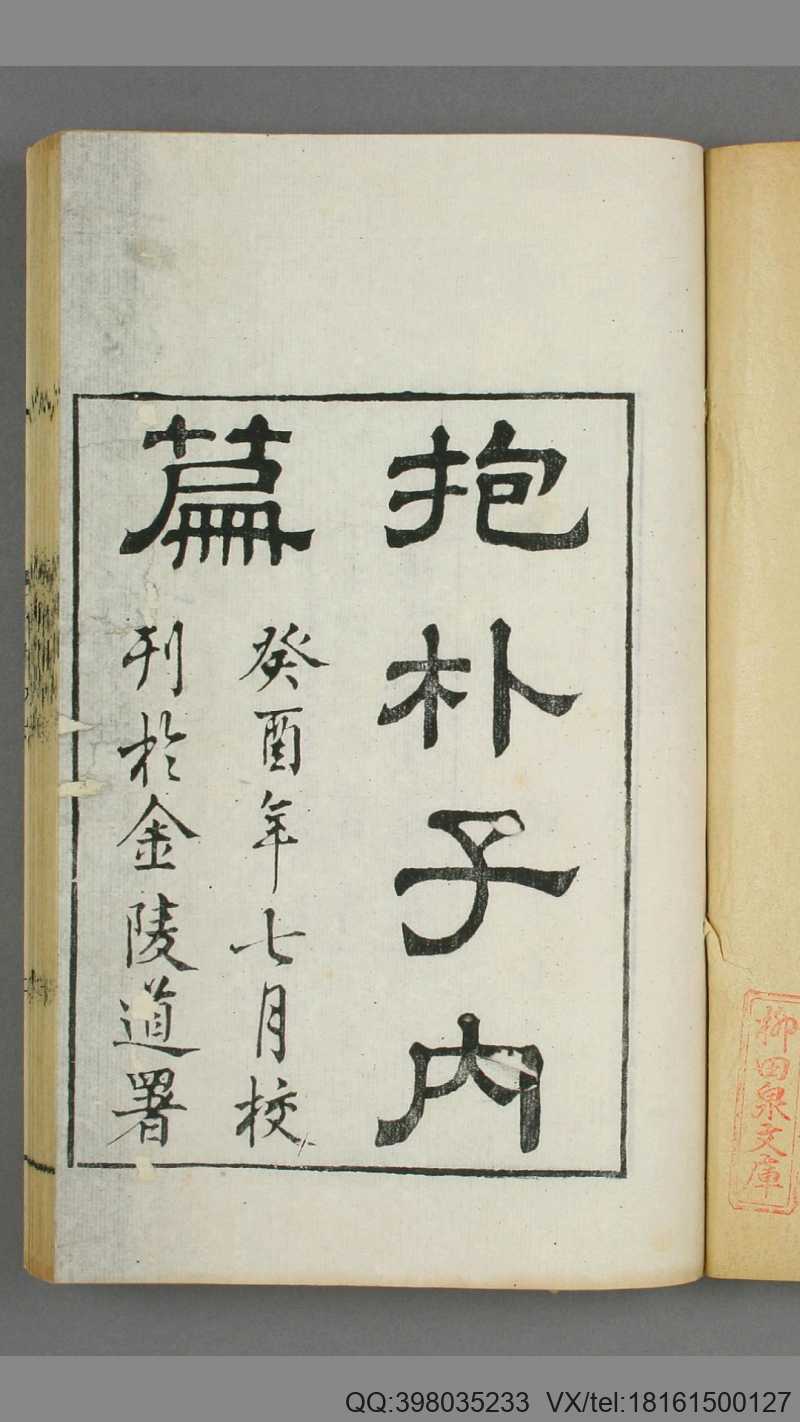 抱朴子内
篇
癸酉年七月校
刊於金陵道署
柳田泉文庫
QQ:398035233 VX/tel:18161500127